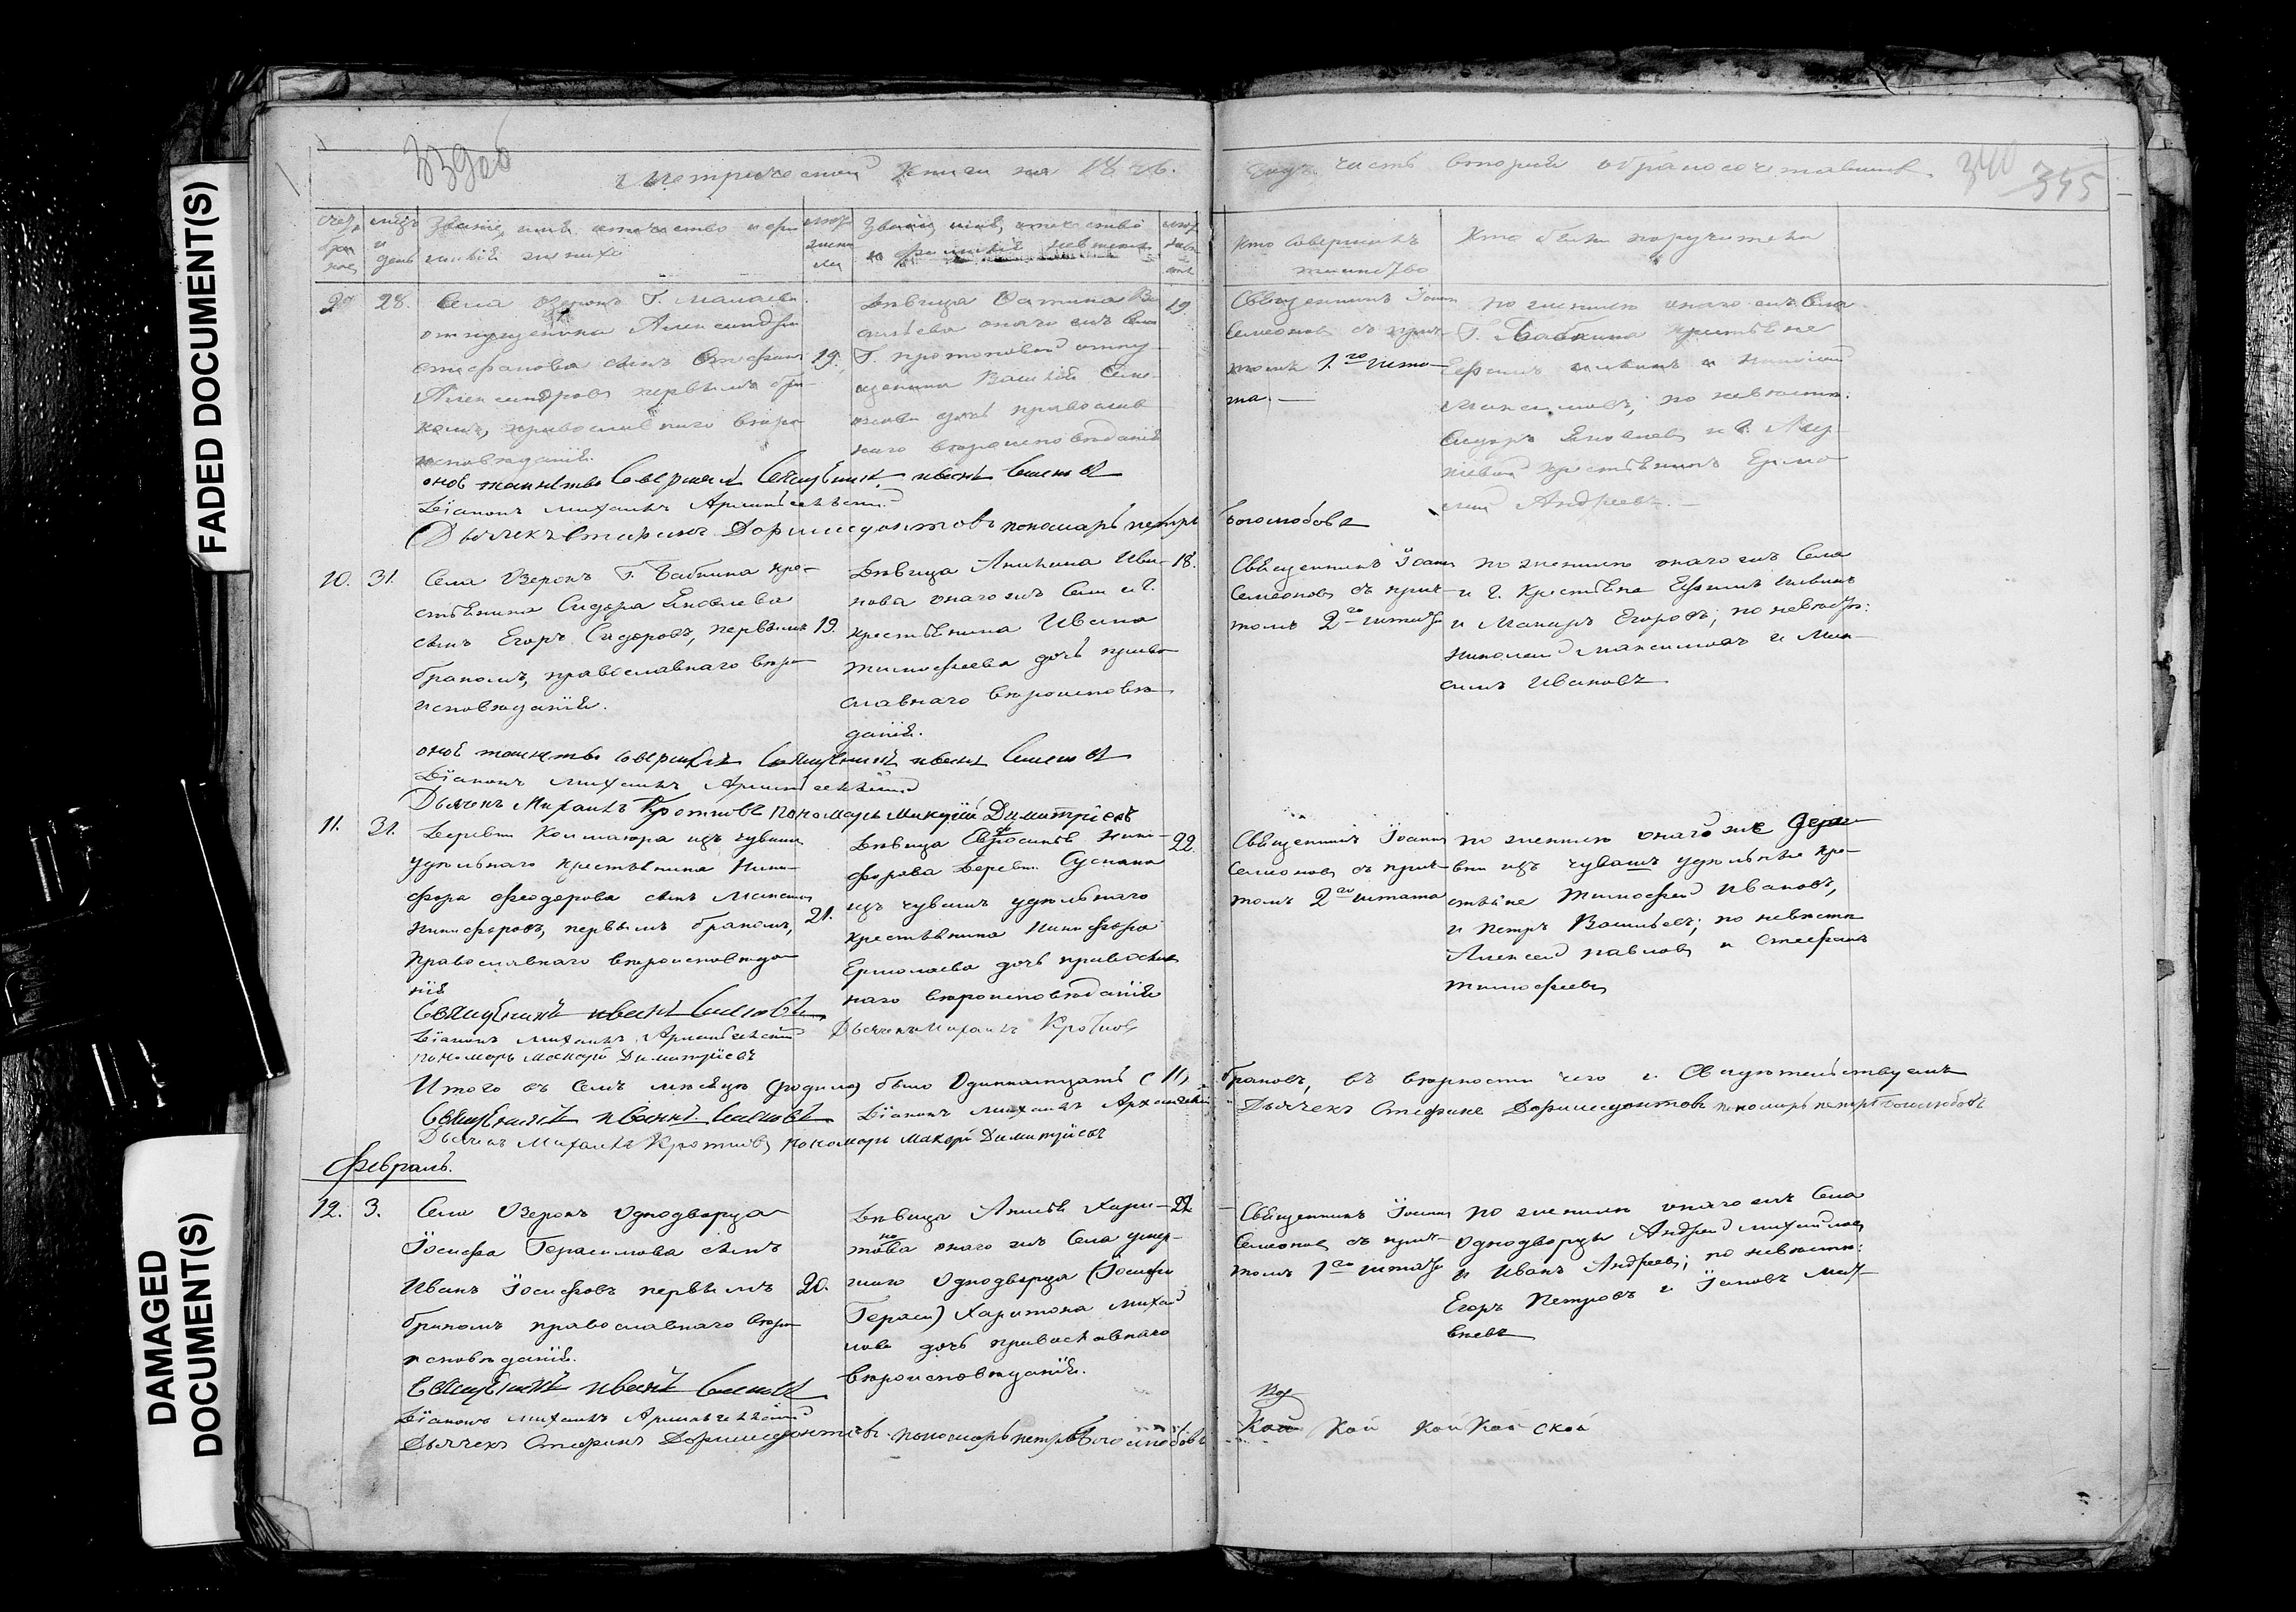 FADED DOCUMENT(S)
DAMAGED
DOCUMENT(S)
Метрической Книги на 1846.
Года часть вторая о бракосочетавшихся.
340
345
Счетъ браковъ
мѣсяцъ и день
Званіе, имя, отчество и фамилія жениха
Званіе, имя, отчество и фамилія невѣсты
Кто совершалъ
таинство
Кто были поручители
28.
Села Озерокъ Г.
отпущенника Александра
Стефанова сынъ Стефанъ
Александровъ первымъ бра-
комъ, православнаго вѣро-
исповѣданія.
19.
Дѣвица Ва-
сильева онаго жъ Села
Г. отпу-
щенника Василія Семе-
нова дочь православ
наго вѣроисповѣданія
19
Священникъ Іоаннъ
Семеновъ съ прич-
томъ 1.го шта-
та.
по женихѣ онаго жъ Села
Г. Бабкина крестьяне
Ефимъ и Николай
Максимовъ; по невѣстѣ:
Сидоръ Яковлевъ и Г.
крестьянинъ
Андреевъ.
оное таинство Совершалъ Священникъ Иванъ Семеновъ
Діаконъ Михаилъ Архангельскій
Дьячекъ Стефанъ Доримедонтовъ пономарь петръ Боголюбовъ
10.
31.
Села Озерокъ Г. Бабкина кре-
стьянина Сидора Яковлева
сынъ Егоръ Сидоровъ, первымъ
бракомъ, православнаго вѣро-
исповѣданія.
19.
Дѣвица Акилина Ива-
нова онаго жъ Села и Г.
крестьянина Ивана
Тимофеева дочь право
славнаго вѣроисповѣ-
данія.
18.
Священникъ Іоаннъ
Семеновъ съ прич-
томъ 2го штата
по женихѣ онаго жъ Села
и Г. Крестьяне Ефимъ
и Макаръ Егоровъ; по невѣстѣ:
Николай Максимовъ и Мак-
симъ Ивановъ
оное таинство совершалъ Священникъ иванъ Семеновъ
Діаконъ Михаилъ Архангельскій
Дьячекъ Михаилъ Кротковъ пономарь Макарій Димитріевъ
11.
31.
Деревни изъ чувашъ
удѣльнаго крестьянина Ники-
фора Феодорова сынъ Максимъ
Никифоровъ, первымъ бракомъ,
православнаго вѣроисповѣда-
нія
21.
Дѣвица Евфросинія Ники-
форова Деревни
изъ чувашъ удѣльнаго
крестьянина Никифора
Ермолаева дочь православ
наго вѣроисповѣданія
22.
Священникъ Іоаннъ
Семеновъ съ прич-
томъ 2го штата
по женихѣ онаго же Дере-
вни изъ чувашъ удѣльные кре-
стьяне Тимофей Ивановъ,
и Петръ Васильевъ; по невѣстѣ
Алексей павловъ и Стефанъ
Тимофеевъ
Священникъ иванъ Семеновъ
Діаконъ Михаилъ Архангельскій
Дьячекъ Михаилъ Кротковъ
пономарь Макарій Димитріевъ
Итого въ Семъ мѣсяцѣ было Одиннадцать (11) браковъ, въ вѣрности чего и Свидѣтельствуемъ
Священникъ иванъ Семеновъ Діаконъ Михаилъ Архангельскій Дьячекъ Стефанъ Доримедонтовъ пономарь петръ Боголюбовъ
Дьячекъ Михаилъ Кротковъ пономарь Макарій Димитріевъ
Февраль.
12.
3.
Села Озерокъ Однодворца
Іосифа Герасимова сынъ
Иванъ Іосифовъ первымъ
бракомъ православнаго вѣро
исповѣданія.
20.
Дѣвица Хари-
това онаго жъ Села умер-
шаго Однодворца (Іосифа
Герасим) Харитона Михай
лова дочь православнаго
вѣроисповѣданія.
22.
Священникъ Іоаннъ
Семеновъ съ прич-
томъ 1го штата
по женихѣ онаго жъ Села
Однодворцы Андрей Михайловъ
и Иванъ Андреевъ; по невѣстѣ:
Егоръ Петровъ и Іаковъ Мат-
вѣевъ
Священникъ иванъ Семеновъ
Діаконъ Михаилъ Архангельскій
Дьячекъ Стефанъ Доримедонтовъ пономарь петръ Боголюбовъ
Кой Кой Кой Кой ской